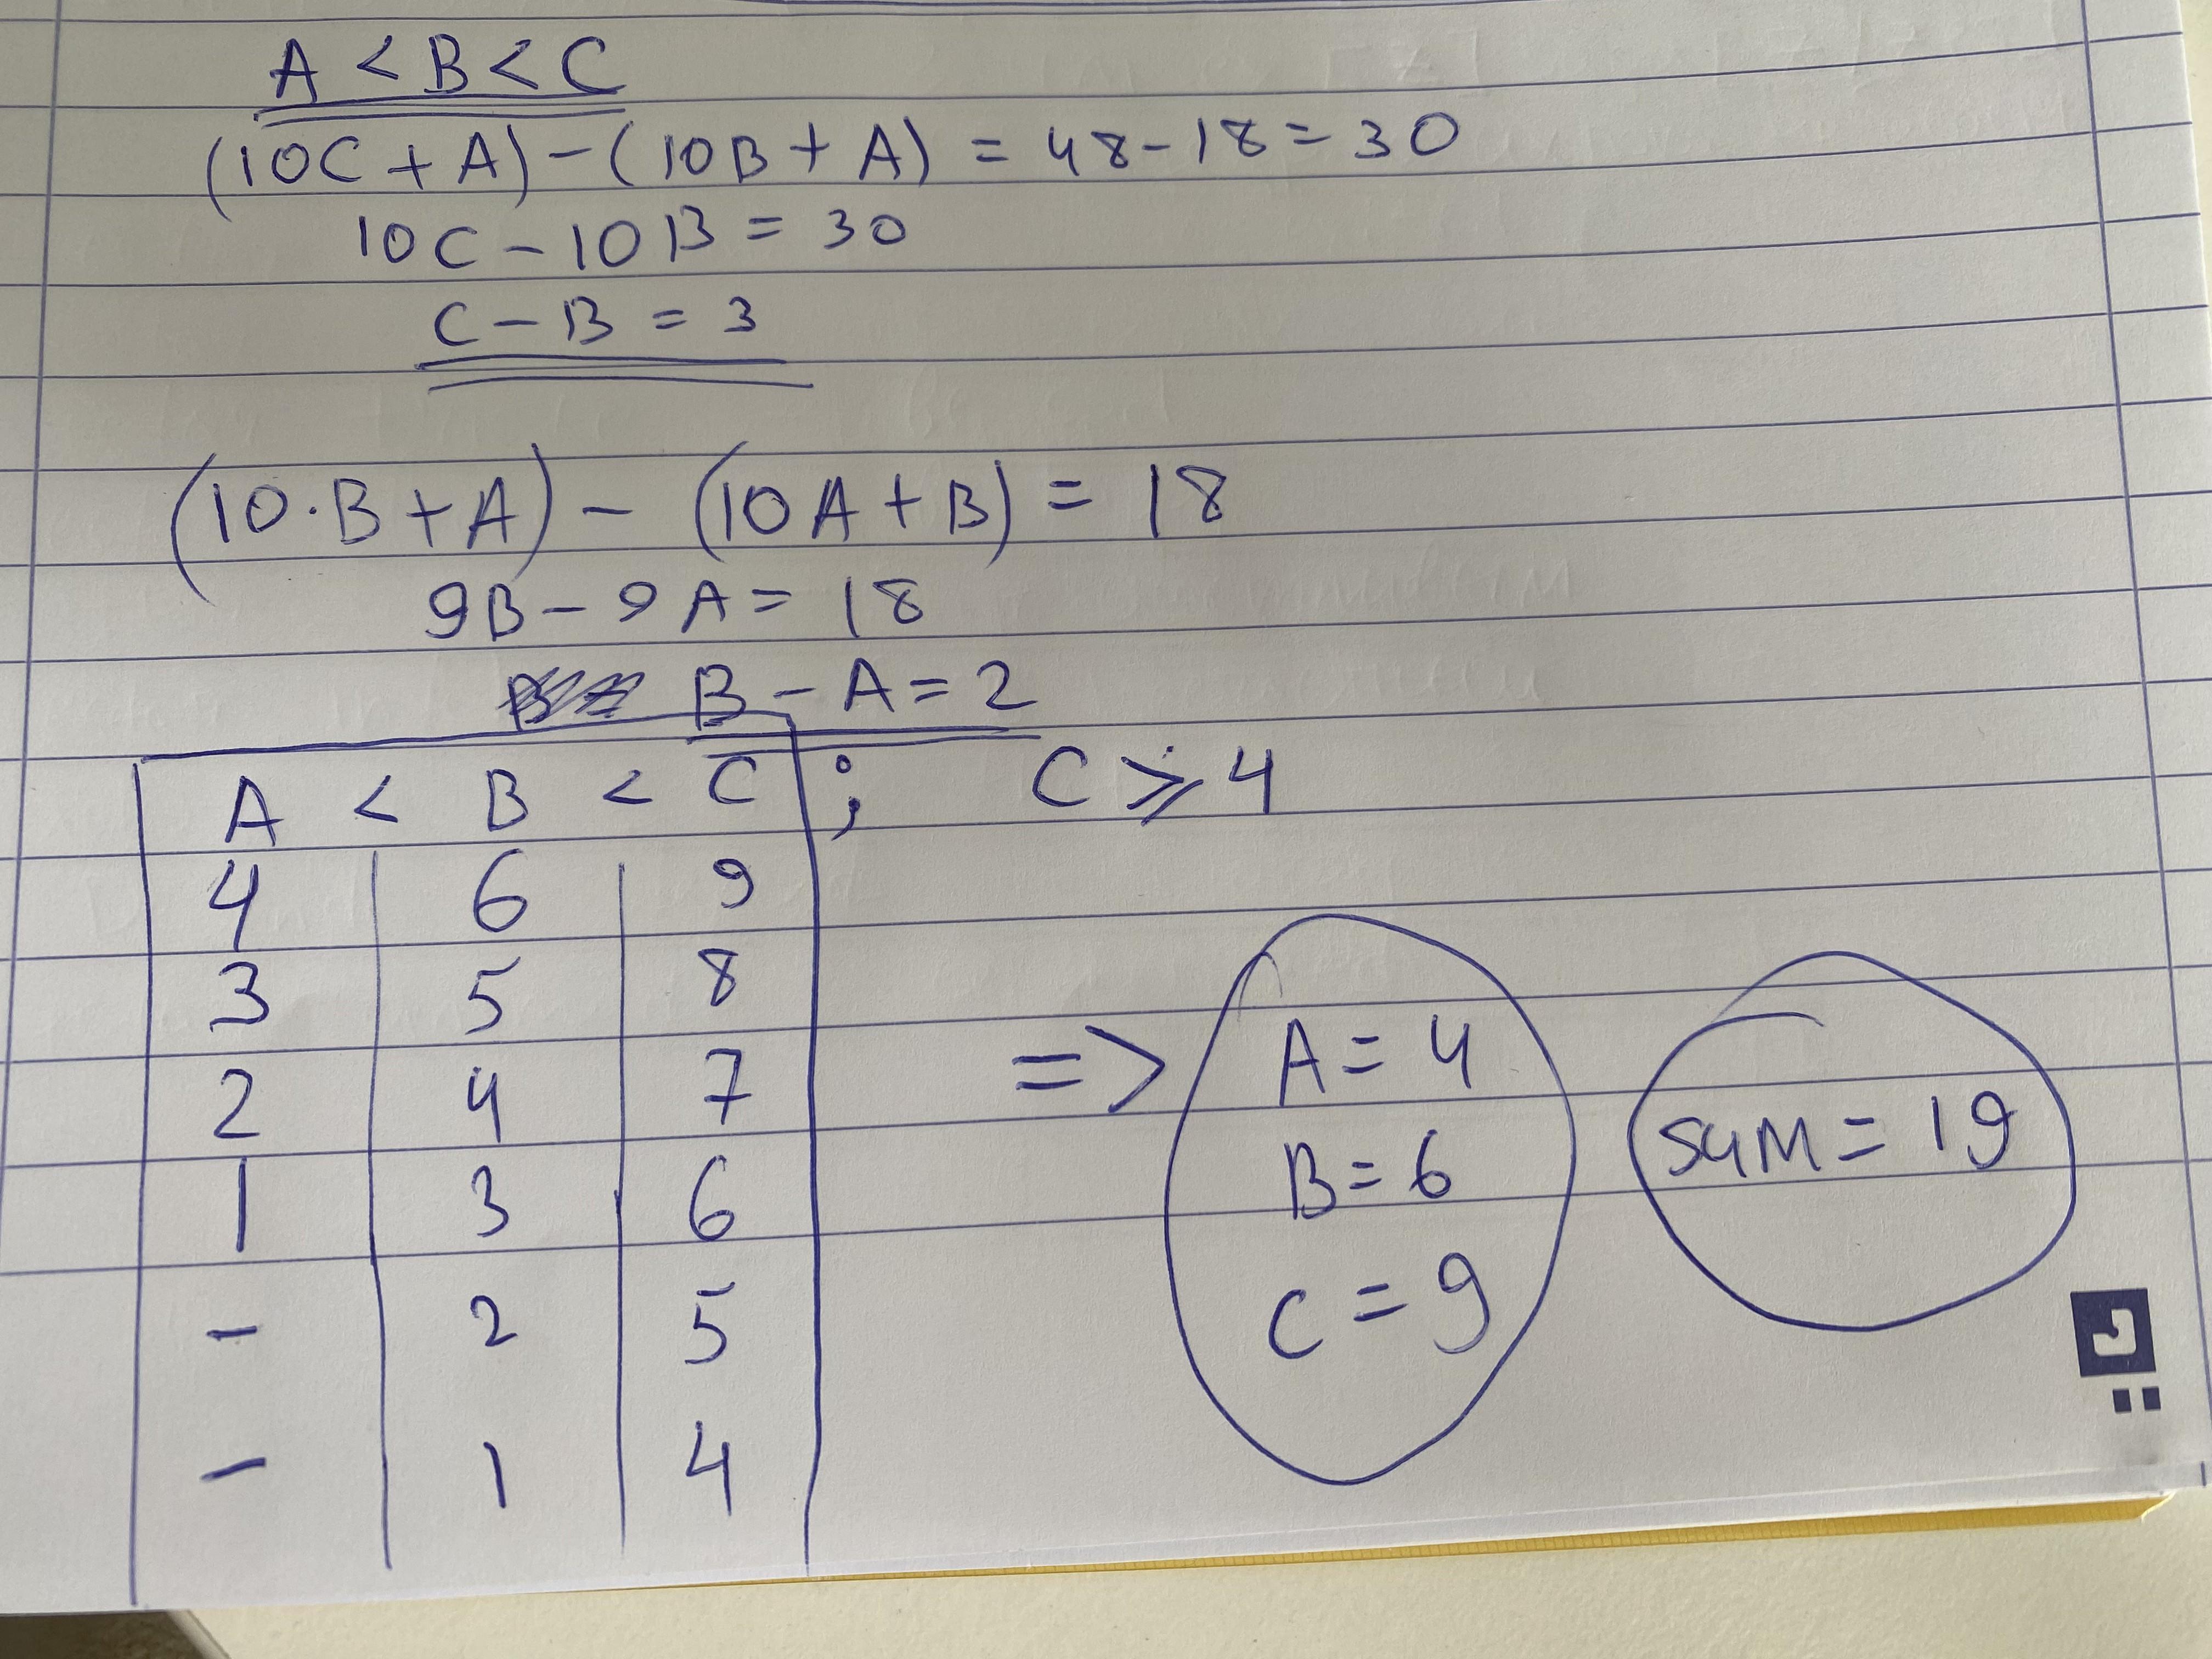 A < B < C
(10C + A) - (10B + A) = 48 - 18 = 30
10C - 10B = 30
C - B = 3
(10·B + A) - (10A + B) = 18
9B - 9A = 18
B - A = 2
A < B < C ; C ⩾ 4
4 6 9
3 5 8
2 4 7
1 3 6
- 2 5
- 1 4
=> A = 4
B = 6
C = 9
SUM = 19